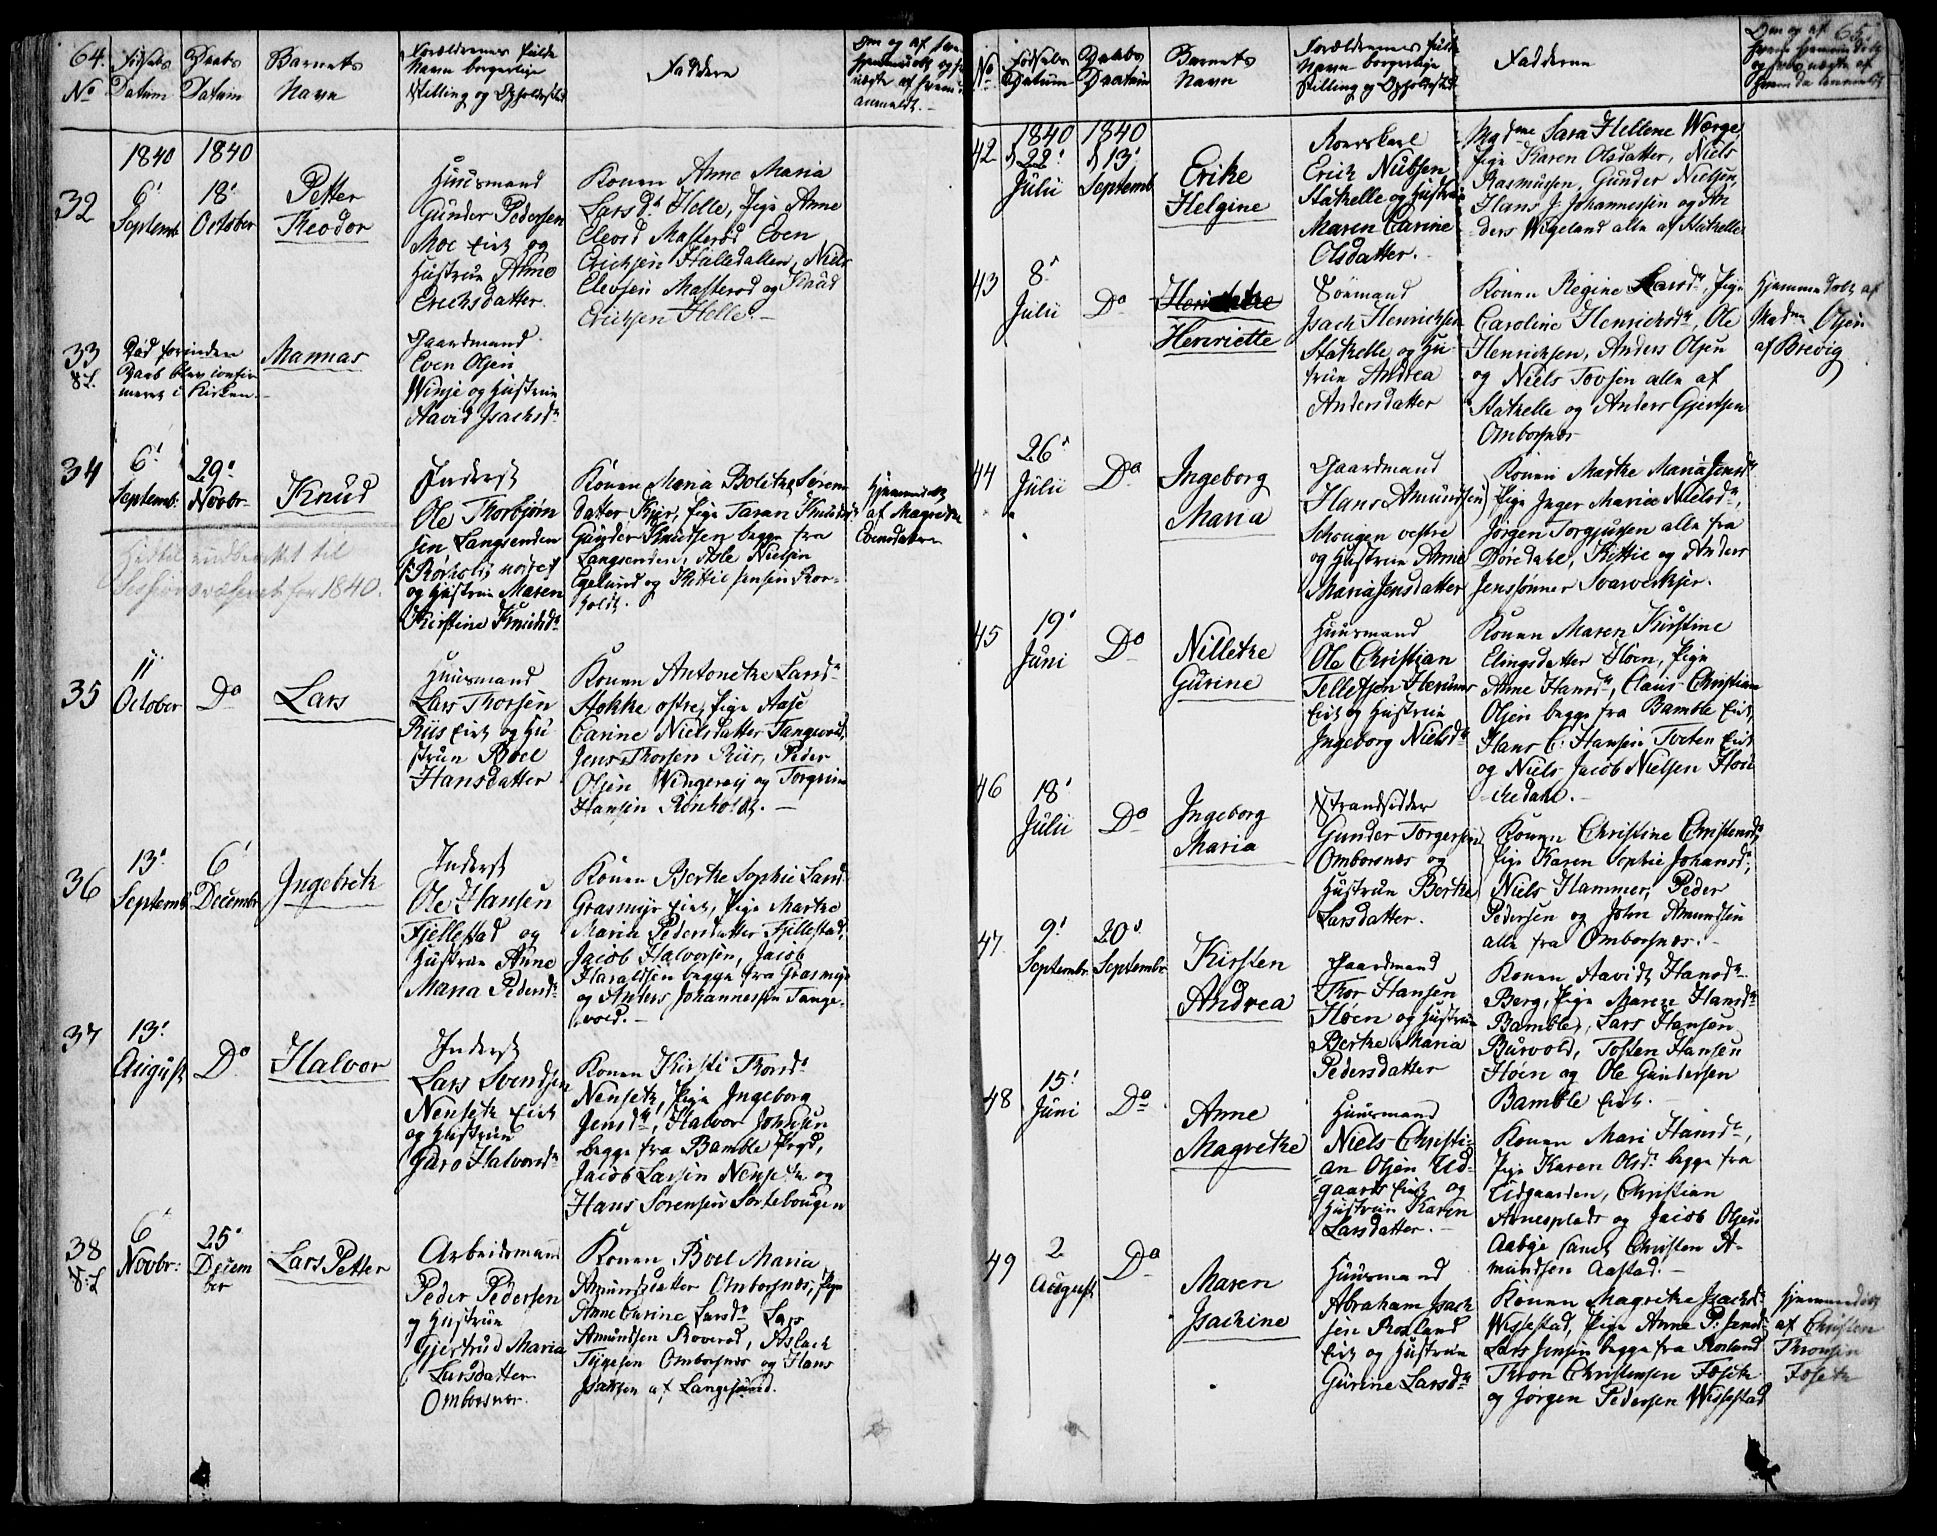 64.
No
Fødsels Datum
Daabs Datum
Barnets Navn
Forældrenes fulde Navn borgerlige Stilling og Opholdssted
Faddere
Om og af hvem
anmeldt.
1840 1840
32
6' Septemb.
18' October
Petter
Theodor
Huusmand
Gunder Pedersen
Moe Eiet og
Hustrue Anne
Erichsdatter.
Konen Anne Maria
Larsdr Helle, Pige Anne
Elevsd Masterød Even
Erichsen Halledallen, Niels
Elevsen Masterød og Knud
Erichsen Helle.
33
Død forinden
Daab blev confir
meret i Kirken.
Mannas
Gaardmand
Even Olsen
Winje og Hustrue
Aavid Isachsdr
34
6' Septemb:
29' Novbr
Knud
Inderst
Ole Thorbjørn
sen Langsenden
Rørholt nordre
og Hustrue Maren
Kirstine Knudsdr
Konen Maria Bolethe Søren
datter Kjær, Pige Taran Knudsdr
Gunder Knudsen begge fra
Langsenden, Asle Nielsen
Egelund og Kittil Jensen Rør-
holt.
Hjemmedøbt
af Magrethe
Evensdatter
Hidtil indberettet til
Sessionsvæsenet for 1840.
35
11 October
Do
Lars
Huusmand
Lars Thorsen
Riis Eiet og Hu
strue Boel
Hansdatter
Konen Antonethe Larsdr
Stokke østre, Pige Aase
Carine Nielsdatter Tangvald,
Jens Thorsen Riis, Peder
Olsen Wingereij og Torgrim
Hansen Rønholdt.
36
13' Septemb
6' Decembr
Ingebreth
Inderst
Ole Hansen
Fjellestad og
Hustrue Anne
Maria Pedersdr
Konen Berthe Sophie Larsd
Grasmyr Eiet, Pige Marthe
Maria Pedersdatter Fjellestad,
Jacob Halvorsen, Jacob
Haraldsen begge fra Grasmyr
og Anders Johannessen Tange-
vold.
37
13' August
Do
Halvor
Inderst
Lars Svendsen
Nenseth Eiet
og Hustrue
Guro Halvorsdr
Konen Kirsti Thorsdr
Nenseth, Pige Ingeborg
Jensdr, Halvor Johnsen
begge fra Bamble Prgd,
Jacob Larsen Nenseth og
Hans Sørensen Sortebougen
38
6' Novbr:
25' Decem
ber
Lars Petter
Arbeidsmand
Peder Pedersen
og Hustrue
Gjertrud Maria
Larsdatter
Omborsnæs.
Konen Boel Maria
Amundsdatter Omborsnæs, Pige
Anne Carine Larsdr Lars
Amundsen Roverød, Aslach
Tygesen Omborsnæs og Hans
Isaksen af Langesund.
65.
No
Fødsels Datum
Daabs Daatum
Barnets Navn
Forældrenes fulde Navn borgerlige Stilling og Opholdssted
Faddere
Om og af
hvem hjemmedøbt
1840 1840
42
d 22' Julii
d 13' Septemb.
Erike
Helgine
Erich Nielsen
Stathelle og Hustrue
Maren Carine
Olsdatter.
Madme Sara Hellene Wærge
Pige Karen Olsdatter, Niels
Rasmussen, Gunder Nielsen,
Hans J. Johannessen og An
ders Wigeland alle af Stathelle
43
8' Julii
Do
Henriette
Sømand
Isach Henrichsen
Stathelle og Hu
strue Andrea
Andersdatter
Konen Regine Larsdr, Pige
Caroline Henrichsdr, Ole
Henrichsen, Anders Olsen
og Niels Tovsen alle af
Stathelle og Anders Gjertsen
Omborsnæs
Hjemmedøbt af
Madme Olsen
af Brevig
44
26' Julii
Do
Ingeborg
Maria
Gaardmand
Hans Amundsen
Schougen vestre
og Hustrue Anne
Maria Jensdatter
Konen Marthe Maria Jensdr
Pige Inger Maria Nielsdr,
Jørgen Torgjussen alle fra
Dørdahl, Kittil og Anders
Jenssønner Svarverkjær.
45
19' Juni
Do
Nillethe
Gurine
Huusmand
Ole Christian
Tellefsen Herum
Eiet og Hustrue
Ingeborg Nielsdr
Konen Maren Kirstine
Elingsdatter Hoen, Pige
Anne Hansdr, Claus Christian
Olsen begge fra Bamble Eiet,
Hans C. Hansen Toeten Eiet
og Niels Jacob Nielsen Høn
chedahl.
46
18' Julii
Do
Ingeborg
Maria
Strandsidder
Gunder Torgersen
Omborsnæs og
Hustrue Berthe
Larsdatter.
Konen Christine Christensdr
Pige Karen Sophie Johansdr,
Niels Hammer, Peder
Pedersen og John Amundsen
alle fra Omborsnæs.
47
9' Septembr
20' Septembr
Kirsten
Andrea
Gaardmand
Thor Hansen
Hoen og Hustrue
Berthe Maria
Pedersdatter
Konen Aavidt Hansdr
Berg, Pige Maren Hansdr
Bamble, Lars Hansen
Burvold, Tosten Hansen
Hoen og Ole Gundersen
Bamble Eiet.
48
15' Juni
Do
Anne
Magrethe
Huusmand
Niels Christi-
an Olsen Ud-
gaard Eiet og
Hustrue Karen
Larsdatter.
Konen Mari Hansdr,
Pige Karen Olsdr begge fra
Udgaarden, Christian
Arnesplads og Jacob Olsen
Aabye samt Christen A-
mundsen Aastad.
49
2 August
Do
Maren
Isachine
Huusmand
Abraham Isach
sen Rosland
Eiet og Hustrue
Gurine Larsdr
Konen Magrethe Isachsdr
Wissestad, Pige Anne P: Jensdr
Lars Jensen begge fra Rosland
Thron Christensen Foseth
og Jørgen Pedersen Wissestad
Hjemmedøbt
af Christen
Thronsen
Foseth